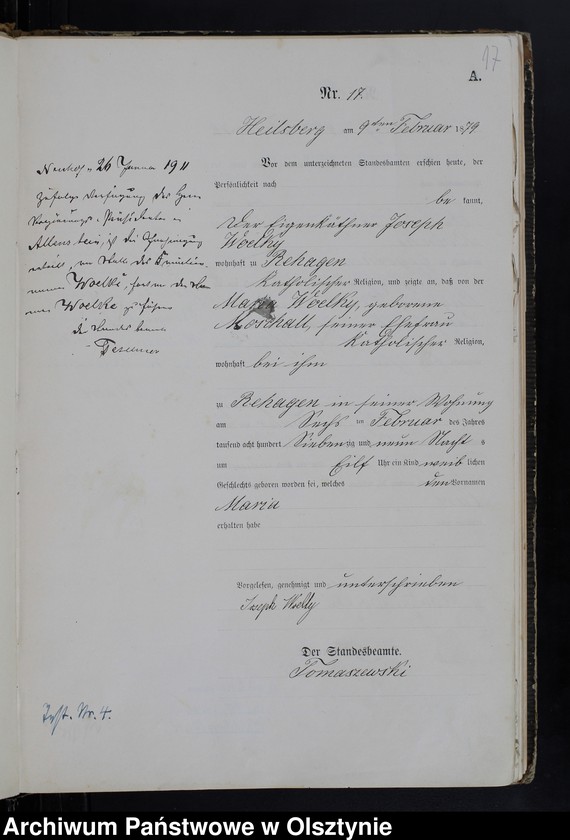 17
A.
Nr. 17.
Heilsberg am 9ten Februar 1879
Vor dem unterzeichneten Standesbamten erschien heute, der
Persönlichkeit nach
be kannt,
Der Eigenkäthner Joseph
Woelky
wohnhaft zu Rehagen
Katholischer Religion, und zeigte an, daß von der
Maria Woelky, geborene
Moschall, seiner Ehefrau
Katholischer Religion,
wohnhaft bei ihm
zu Rehagen in seiner Wohnung
am Sechs ten Februar des Jahres
tausend acht hundert Sieben zig und neun Nacht s
um Eilf Uhr ein Kind weib lichen
Geschlechts geboren worden sei, welches den Vornamen
Maria
erhalten habe
Vorgelesen, genehmigt und unterschrieben
Joseph Woelky
Der Standesbeamte.
Tomaszewski
26 Januar 1911
Zufolge Verfügung des Herrn
Regierungs-Präsidenten in
Allenstein ist die Genehmigung
erteilt, an Stelle des Familien-
namens Woelki, fortan den Na-
men Woelke zu führen
Der Standesbeamte
Nr. 4.
Archiwum Państwowe w Olsztynie